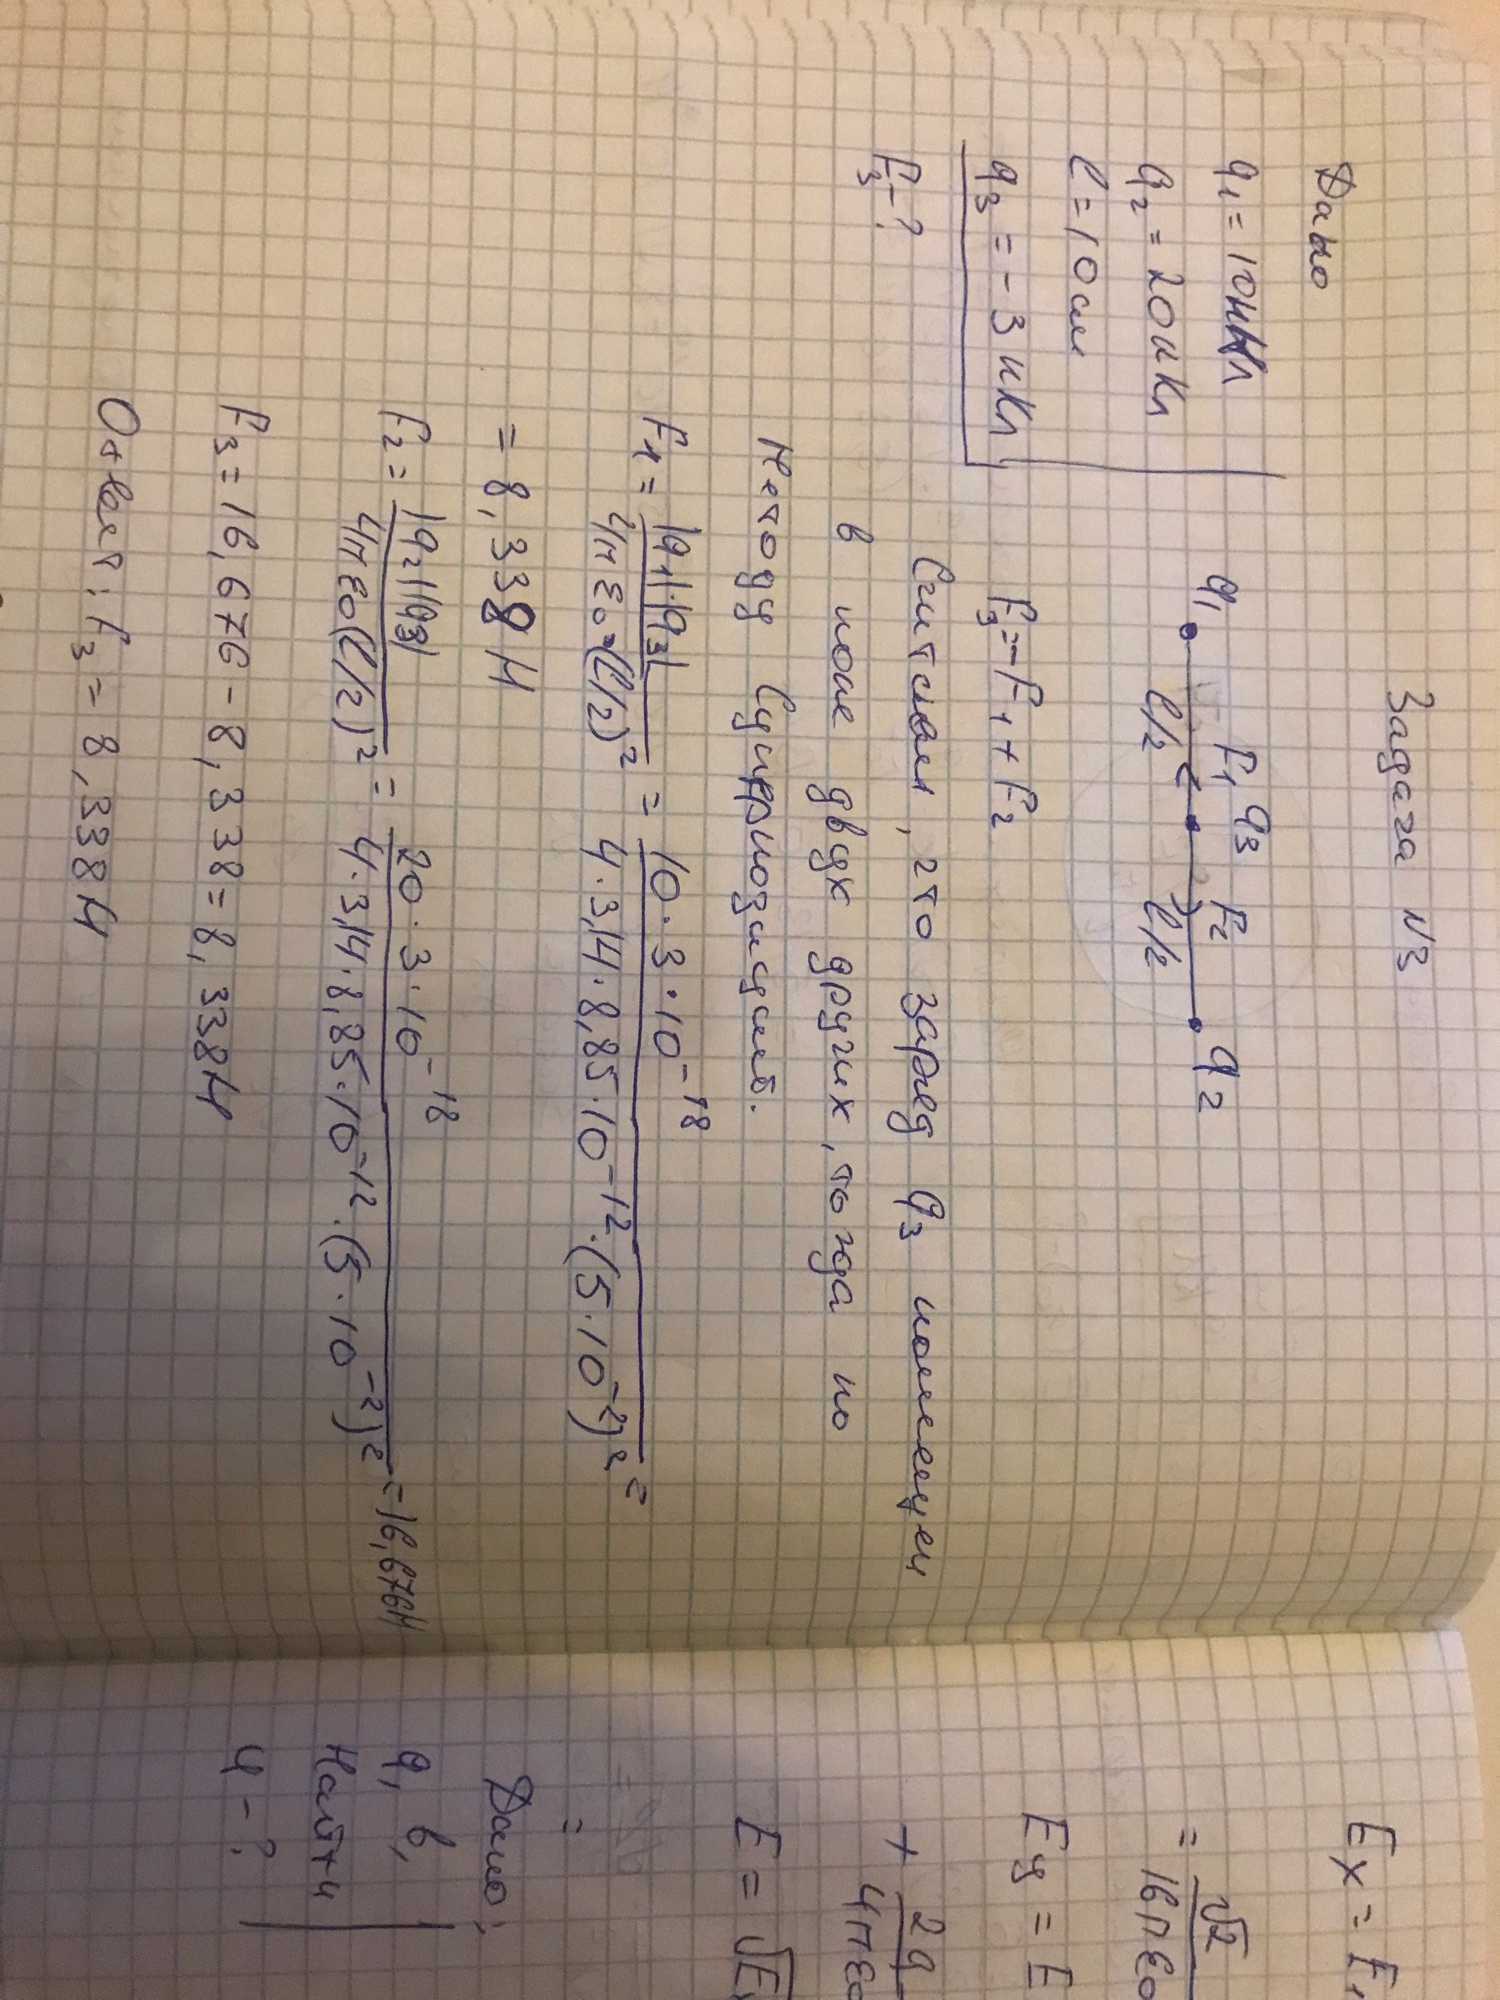 Задача №3
Дано
q₁ = 10нКл
q₂ = 20нКл
l = 10см
q₃ = -3нКл
F₃ - ?
q₁ F₁ q₃ F₂ q₂
l/2 l/2
F₃ = -F₁ + F₂
Считаем, что заряд q₃ помещен
в поле двух других, тогда по
Методу Суперпозиций.
F₁ = |q₁|·|q₃| / 4πε₀·(l/2)² = 10·3·10⁻¹⁸ / 4·3,14·8,85·10⁻¹²·(5·10⁻²)² =
= 8,338Н
F₂ = |q₂||q₃| / 4πε₀(l/2)² = 20·3·10⁻¹⁸ / 4·3,14·8,85·10⁻¹²·(5·10⁻²)² = 16,676Н
F₃ = 16,676 - 8,338 = 8,338Н
Ответ: F₃ = 8,338Н
Eₓ = E₁
= √2 / 16πε₀
Eᵧ = E
+ 2q / 4πε₀
E = √Eₓ
=
Дано:
q, в,
Найти
φ - ?